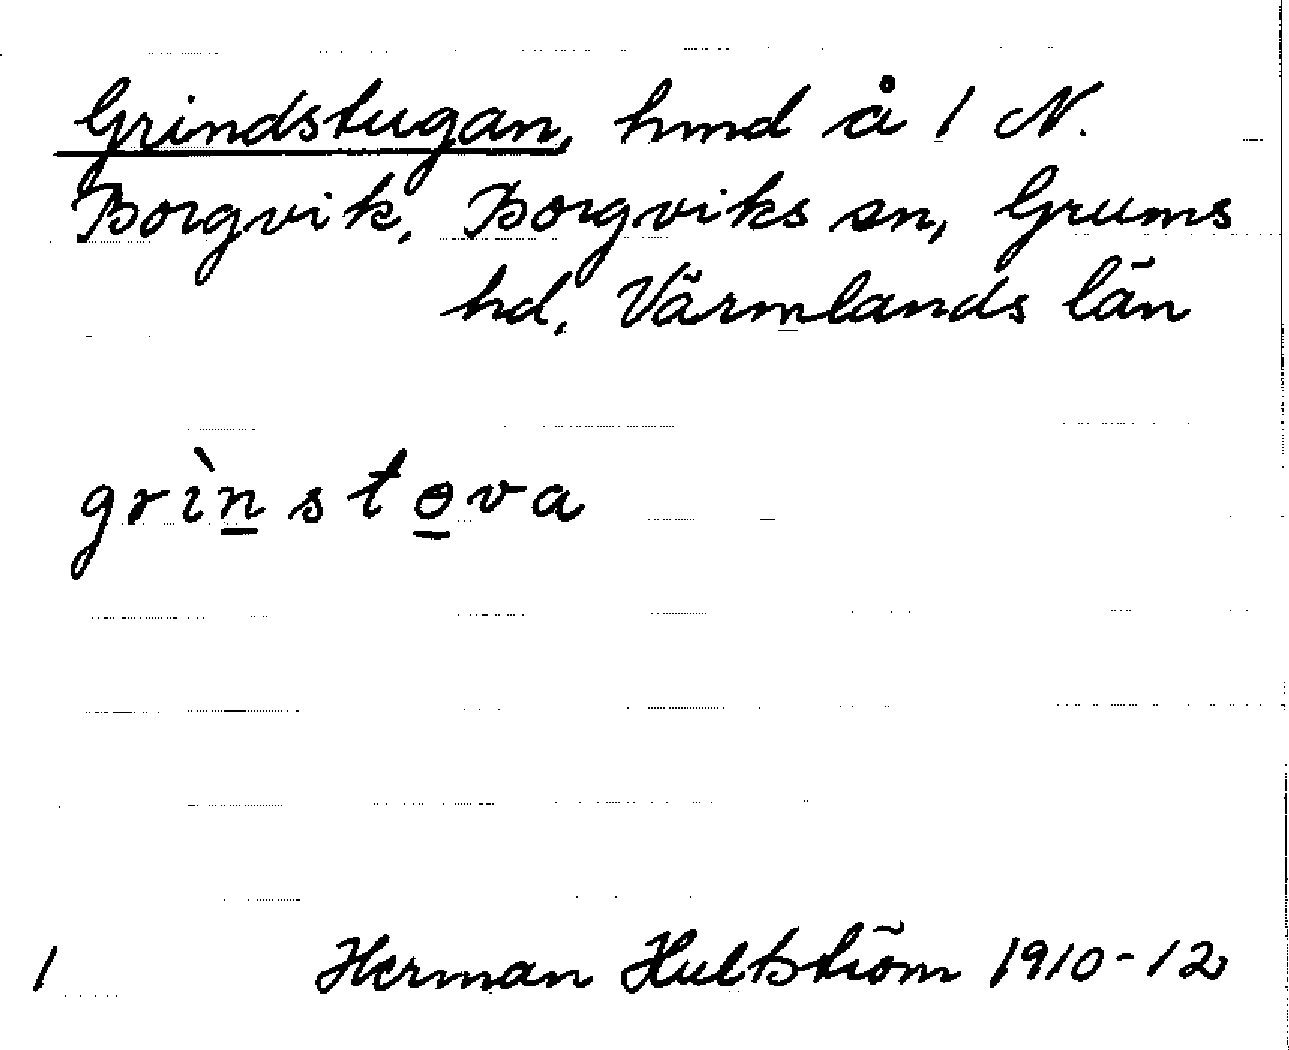 Grindstugan, hmd å 1 N.
Borgvik, Borgviks sn, Grums
hd, Värmlands län
grìn̲sto̲va
1 Herman Hultström 1910-12